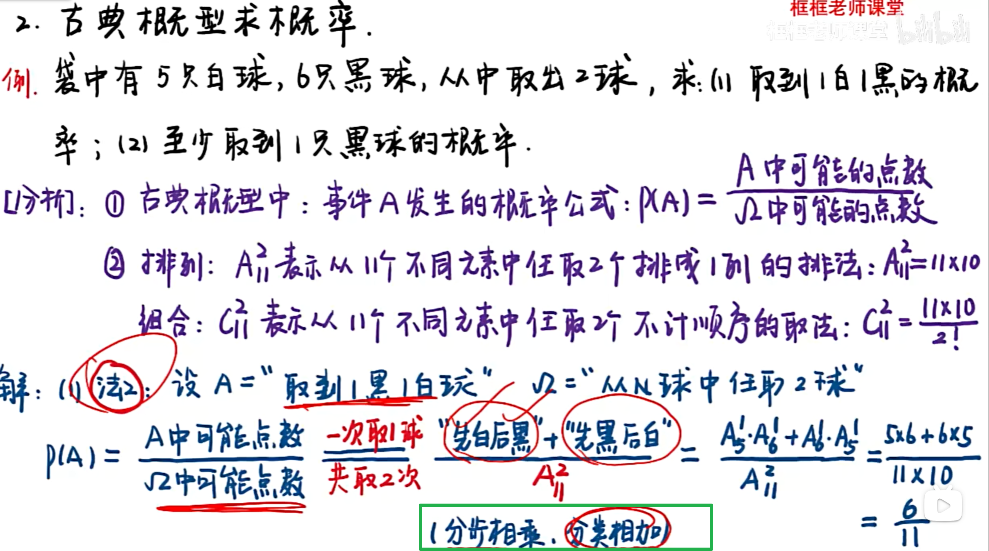 框框老师课堂
框框老师课堂 bilibili
2. 古典概型求概率.
例. 袋中有5只白球,6只黑球,从中取出2球,求:(1) 取到1白1黑的概
率;(2)至少取到1只黑球的概率.
[分析]: ① 古典概型中:事件A发生的概率公式:P(A)= A中可能的点数 / Ω中可能的点数
② 排列: A₁₁² 表示从11个不同元素中任取2个排成1列的排法: A₁₁²=11×10
组合: C₁₁² 表示从11个不同元素中任取2个不计顺序的取法: C₁₁²= 11×10 / 2!
解: (1) 法2: 设 A="取到1黑1白球" Ω="从11球中任取2球"
P(A) = A中可能点数 / Ω中可能点数 一次取1球 共取2次 "先白后黑"+"先黑后白" / A₁₁² = A₅¹·A₆¹+A₆¹·A₅¹ / A₁₁² = 5×6+6×5 / 11×10
(分步相乘、分类相加) = 6/11